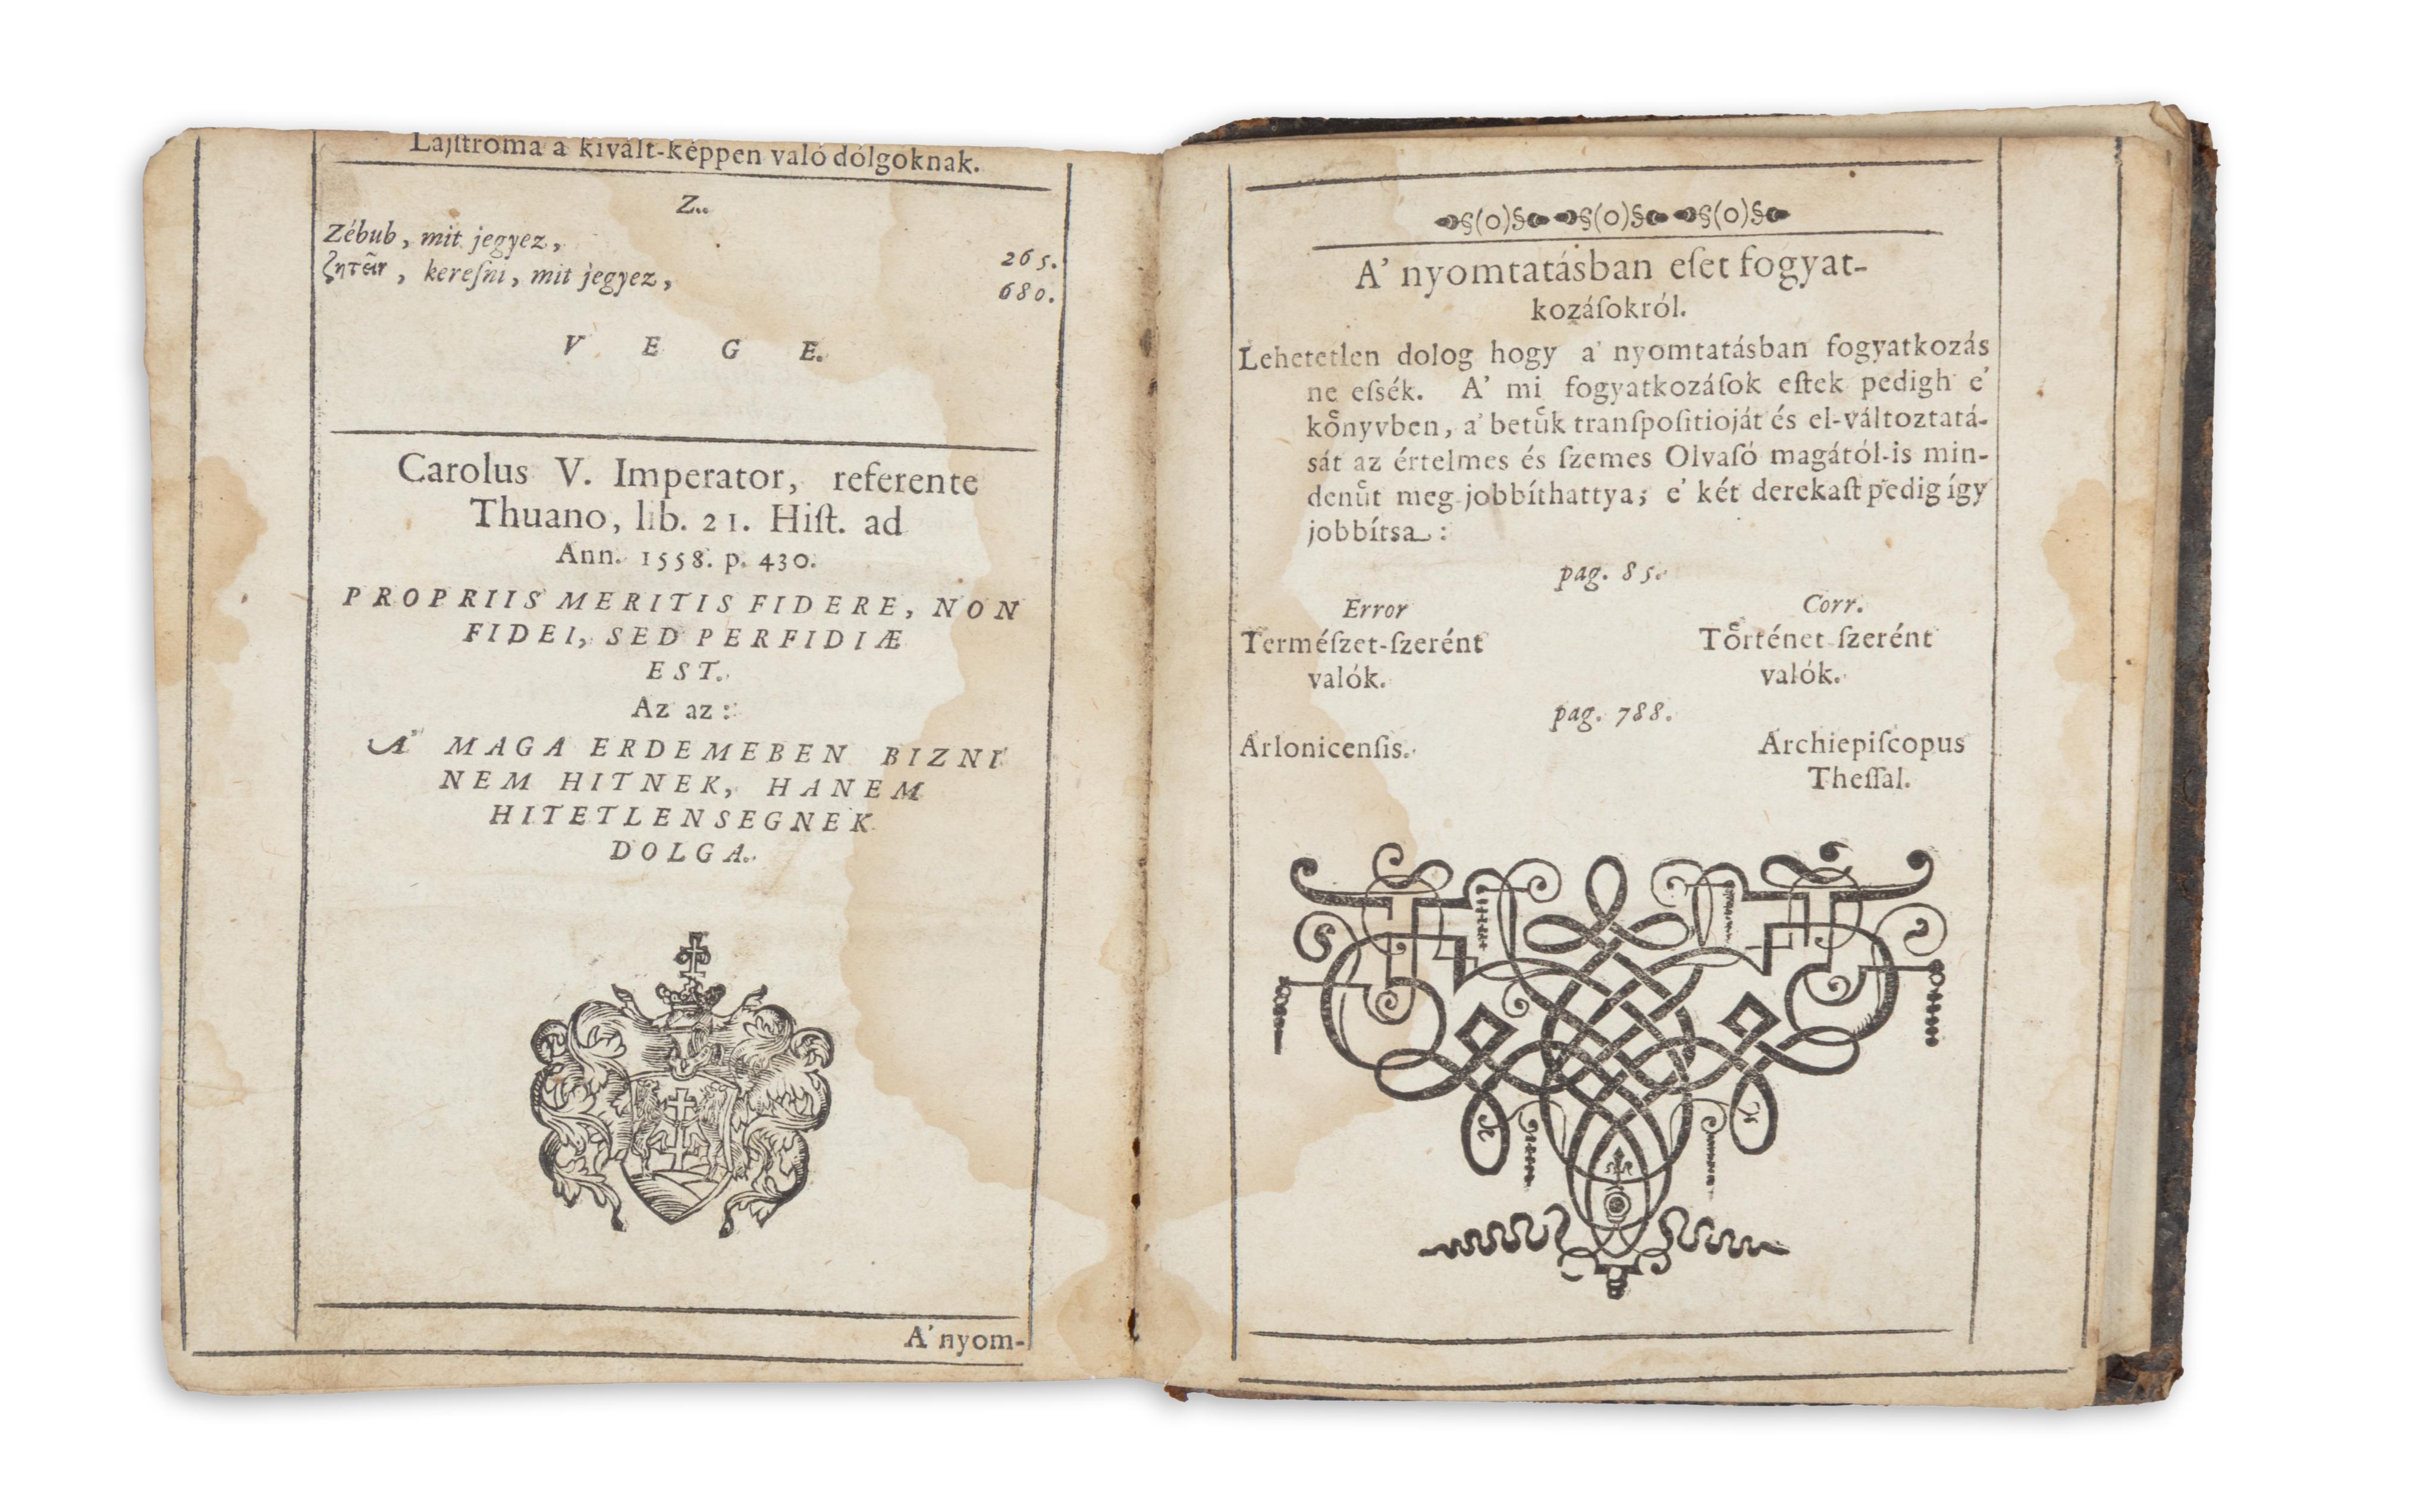 Lajſtroma a kivált-képpen való dólgoknak.
Z.
Zébub, mit jegyez, 265.
ζητεῖν, kereſni, mit jegyez, 680.
V E G E.
Carolus V. Imperator, referente
Thuano, lib. 21. Hiſt. ad
Ann. 1558. p. 430.
PROPRIIS MERITIS FIDERE, NON
FIDEI, SED PERFIDIÆ
EST.
Az az:
A' MAGA ERDEMEBEN BIZNI
NEM HITNEK, HANEM
HITETLENSEGNEK
DOLGA.
A' nyom-
§(o)§ §(o)§ §(o)§
A' nyomtatásban eſet fogyat-
kozáſokról.
Lehetetlen dolog hogy a' nyomtatásban fogyatkozás
ne eſsék. A' mi fogyatkozáſok eſtek pedigh e'
koͤnyvben, a' betuͤk tranſpoſitioját és el-változtatá-
sát az értelmes és ſzemes Olvaſó magától-is min-
denuͤt meg-jobbíthattya; e' két derekaſt pedig így
jobbítsa:
pag. 85.
Error Corr.
Termélzet-ſzerént Toͤrténet-ſzerént
valók. valók.
pag. 788.
Arlonicenſis. Archiepiſcopus
Theſſal.